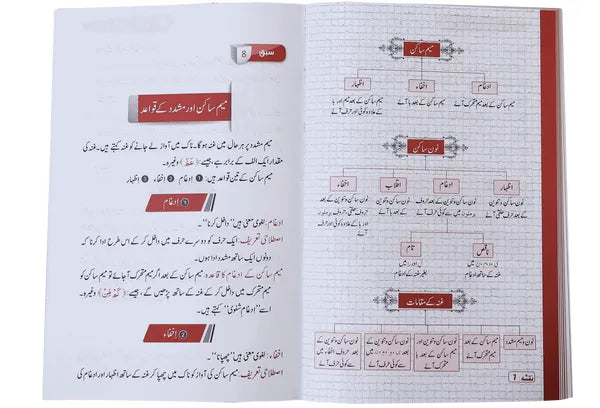 سبق 8
میم ساکن اور مشدد کے قواعد
میم مشدد پر ہر حال میں غنہ ہوگا۔ ناک میں آواز لے جانے کو غنہ کہتے ہیں۔ غنہ کی
مقدار ایک الف کے برابر ہے، جیسے: (عَمَّ) وغیرہ۔
میم ساکن کے تین قواعد ہیں: 1 ادغام 2 اخفاء 3 اظہار
1 ادغام
ادغام: لغوی معنی ہیں "داخل کرنا"۔
اصطلاحی تعریف: ایک حرف کو دوسرے حرف میں داخل کر کے اس طرح ادا کرنا کہ
دونوں ایک ساتھ مشدد ادا ہوں۔
میم ساکن کے ادغام کا قاعدہ: میم ساکن کے بعد اگر میم متحرک آجائے تو میم ساکن کو
میم متحرک میں داخل کر کے غنہ کے ساتھ پڑھیں گے، جیسے: وغیرہ۔
اسے "ادغام شفوی" کہتے ہیں۔
2 اخفاء
اخفاء: لغوی معنی ہیں "چھپانا"۔
اصطلاحی تعریف: میم ساکن کی آواز کو ناک میں چھپا کر غنہ کے ساتھ اظہار اور ادغام کی
میم ساکن
ادغام
اخفاء
اظہار
میم ساکن کے بعد میم متحرک آئے
میم ساکن کے بعد با آئے
میم ساکن کے بعد میم اور با
کے علاوہ کوئی اور حرف آئے
نون ساکن
اظہار
ادغام
اقلاب
اخفاء
نون ساکن و تنوین کے
بعد حرف حلقی آئے
نون ساکن و تنوین کے بعد حروف
یرملون میں سے کوئی حرف آئے
نون ساکن و تنوین
کے بعد با آئے
نون ساکن و تنوین کے بعد
حروف حلقی، حروف یرملون
اور با کے علاوہ کوئی اور حرف
آئے
ناقص
تام
غنہ کے ساتھ ادغام
ل اور ر میں
بغیر غنہ کے ادغام
غنہ کے مقامات
نون و میم مشدد
میم ساکن کے بعد
میم متحرک آئے
نقشہ 1